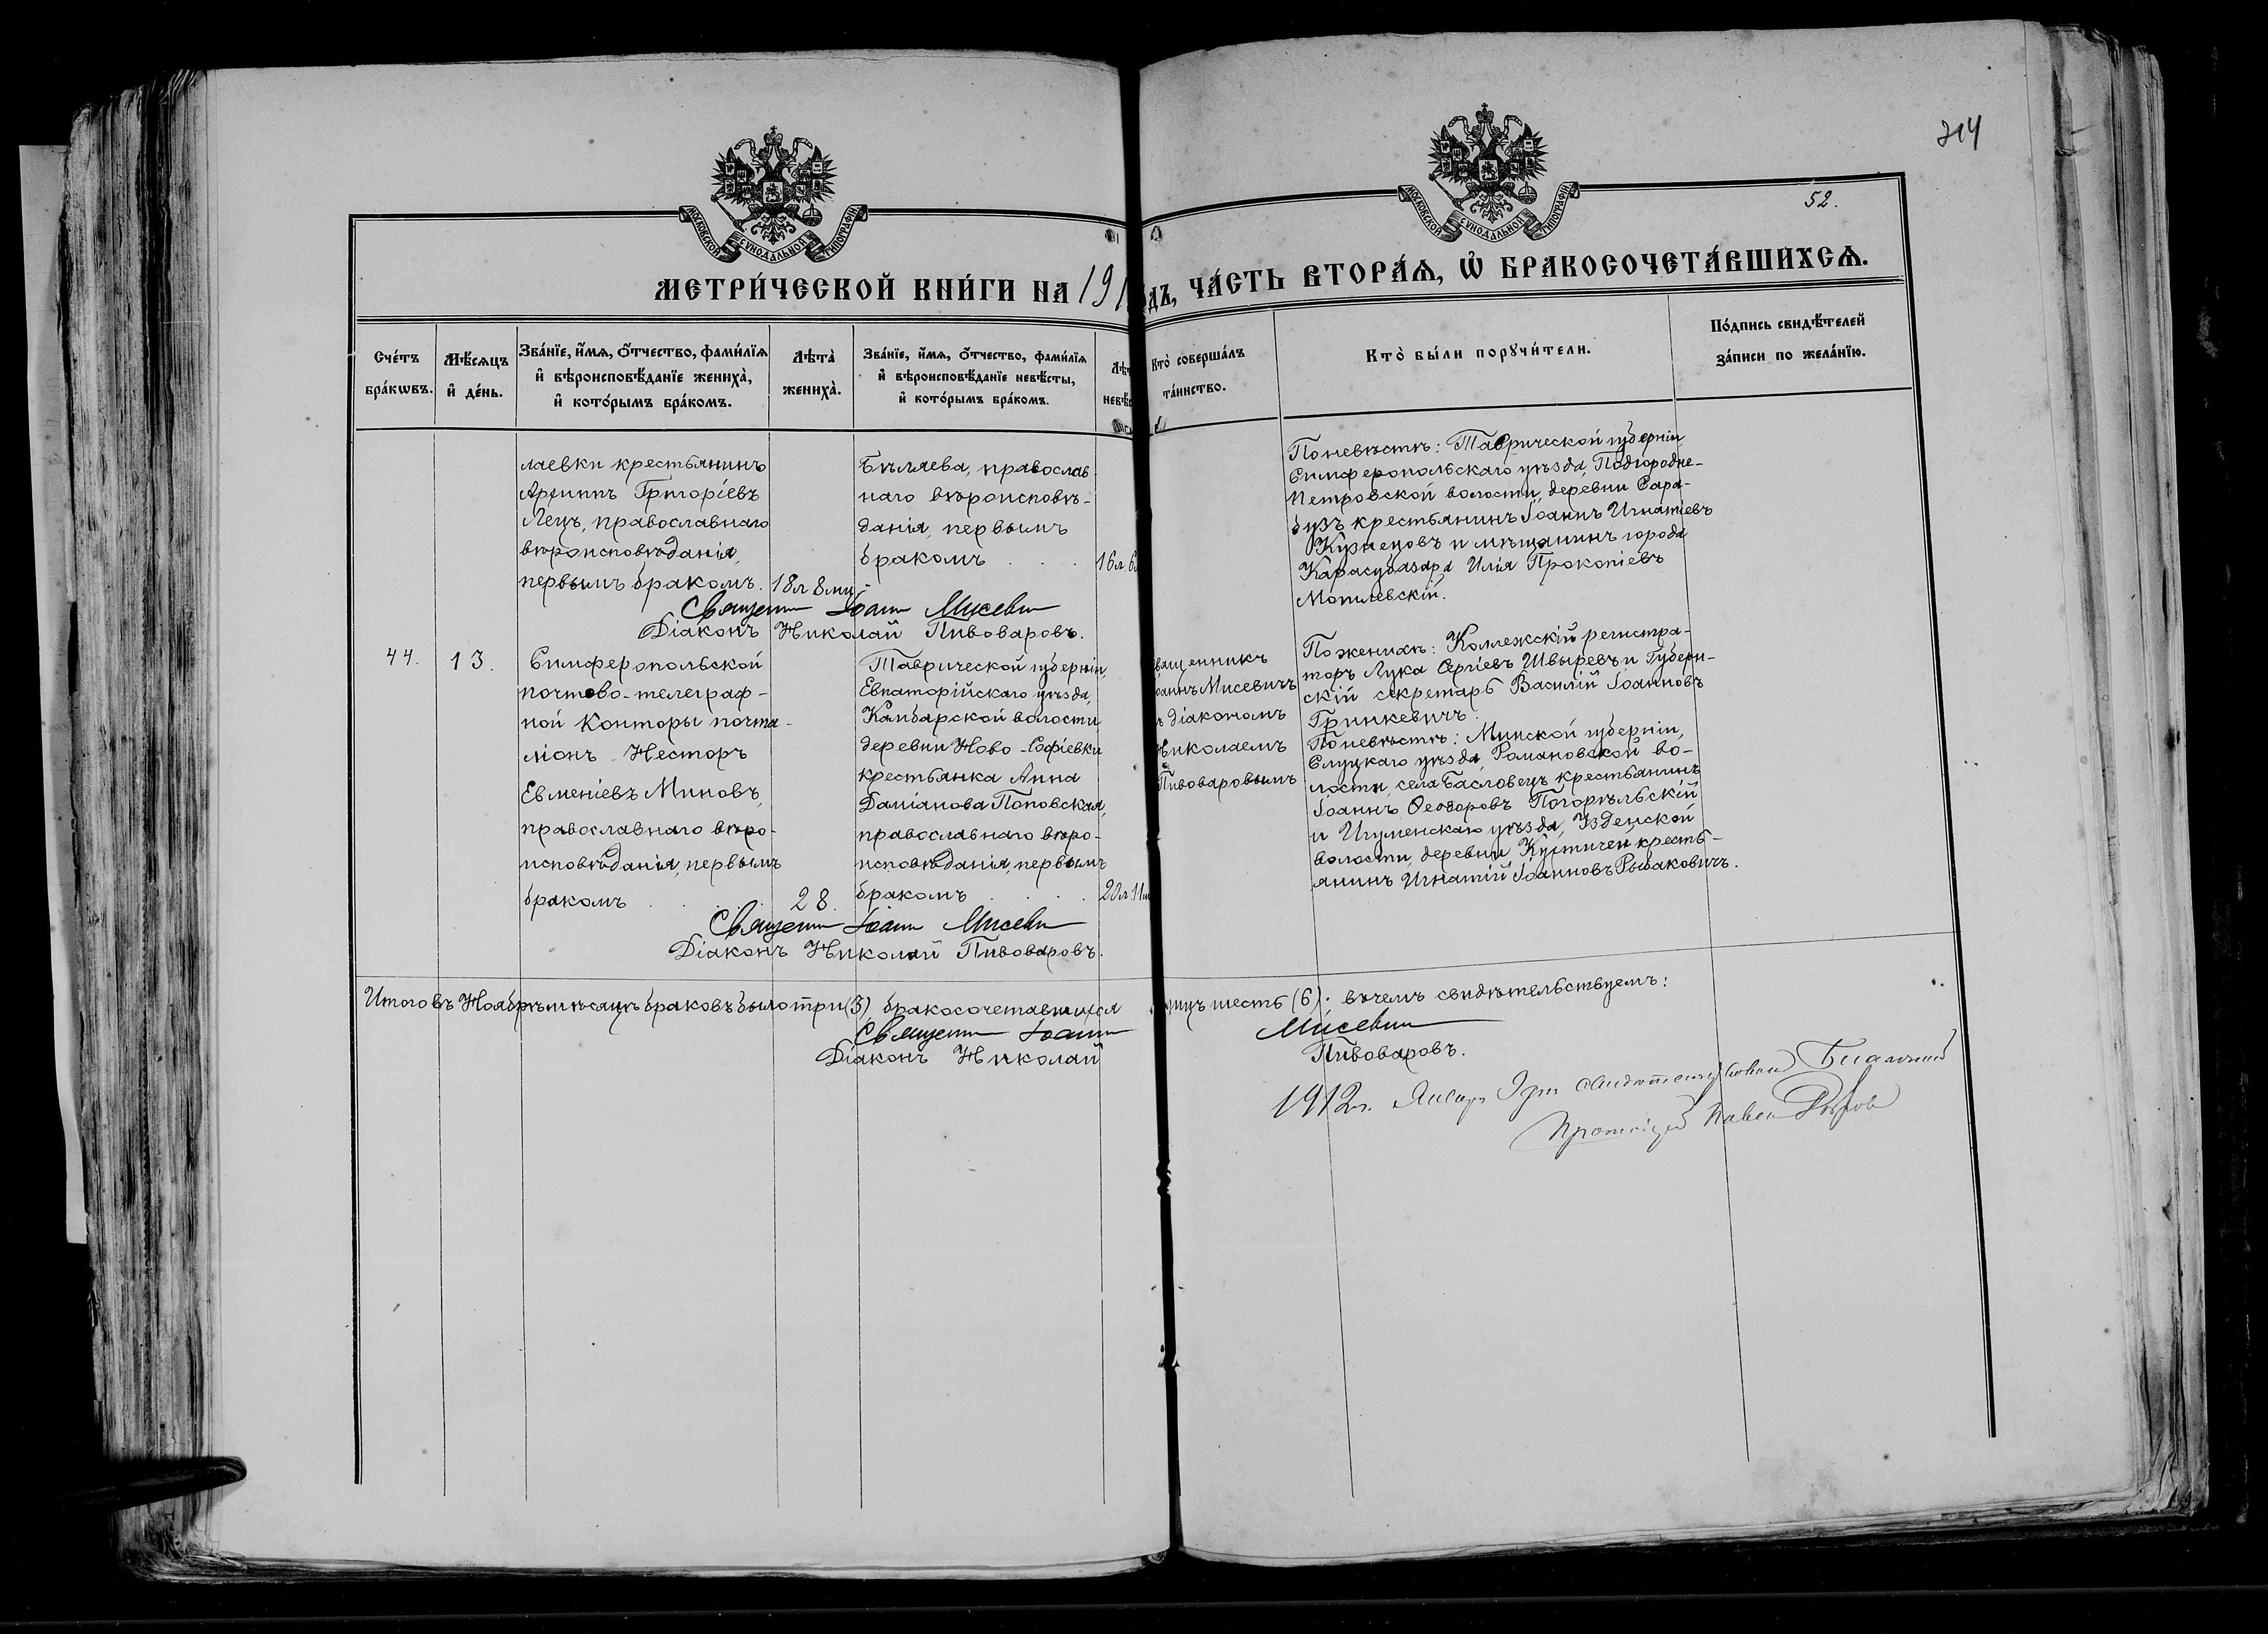 214
52.
МОСКОВСКОЙ СѴНОДАЛЬНОЙ ТИПОГРАФІИ
МОСКОВСКОЙ СѴНОДАЛЬНОЙ ТИПОГРАФІИ
МЕТРИ́ЧЕСКОЙ КНИ́ГИ НА 191
дъ, ЧА́СТЬ ВТОРА́Ѧ, Ѽ БРАКОСОЧЕТА́ВШИХСѦ.
Сче́тъ бра́кѡвъ.
Мѣ́сяцъ и҆ де́нь.
Зва́нїе, и҆́мя, ѻ҆́тчество, фами́лїя
и҆ вѣроисповѣ́данїе жениха̀,
и҆ кото́рымъ бра́комъ.
Лѣта̀ жениха̀.
Зва́нїе, и҆́мя, ѻ҆́тчество, фами́лїя
и҆ вѣроисповѣ́данїе невѣ́сты,
и҆ кото́рымъ бра́комъ.
Лѣт
невѣс
Кто̀ соверша́лъ
та́инство.
Кто̀ бы́ли порꙋчи́тели.
По́дпись свидѣ́телей
за́писи по жела́нїю.
лаевки крестьянинъ
Архиппъ Григоріевъ
Лецъ, православнаго
вѣроисповѣданія,
первымъ бракомъ.
18л 8мц.
Бѣляева, православ-
наго вѣроисповѣ-
данія, первымъ
бракомъ . . .
16л. 6
Поневѣстѣ: Таврической губерніи,
Симферопольскаго уѣзда, Подгородне-
Петровской волости, деревни Сара-
бузъ крестьянинъ Іоаннъ Игнатіевъ
Кузнецовъ и мѣщанинъ города
Карасубазара Илія Прокопіевъ
Могилевскій.
Священн Іоанн Мисеви
Діаконъ Николай Пивоваровъ.
44.
13.
Симферопольской
почтово-телеграф-
ной конторы почта-
ліонъ Несторъ
Евменіевъ Миновъ,
православнаго вѣро-
исповѣданія, первымъ
бракомъ . . . .
28.
Таврической губерніи,
Евпаторійскаго уѣзда,
Камбарской волости,
деревни Ново-Софіевки
крестьянка Анна
Даміанова Поповская,
православнаго вѣро-
исповѣданія, первымъ
бракомъ . . .
20л.11м
вященникъ
оаннъ Мисевичъ
ъ діакономъ
Николаемъ
Пивоваровымъ
Поженихѣ: Коллежскій регистра-
торъ Лука Сергіевъ Швыревъ и Губерн-
скій секретарь Василій Іоанновъ
Гринкевичъ.
Поневѣстѣ: Минской губерніи,
Слуцкаго уѣзда, Романовской во-
лости, села Басловецъ крестьянинъ
Іоаннъ Ѳеодоровъ Погорѣльскій
и Игуменскаго уѣзда, Узденской
волости, деревни Кухтичей кресть-
янинъ Игнатій Іоанновъ Рыбаковичъ.
Священн Іоанн Мисеви
Діаконъ Николай Пивоваровъ.
Итого въ Ноябрѣ мѣсяцѣ браковъ было три (3) бракосочетавшихся
лицъ шесть (6). вчемъ свидѣтельствуемъ:
Священн Іоанн
Мисеви
Діаконъ Николай
Пивоваровъ.
1912г. Январ
Протоіерей Павел